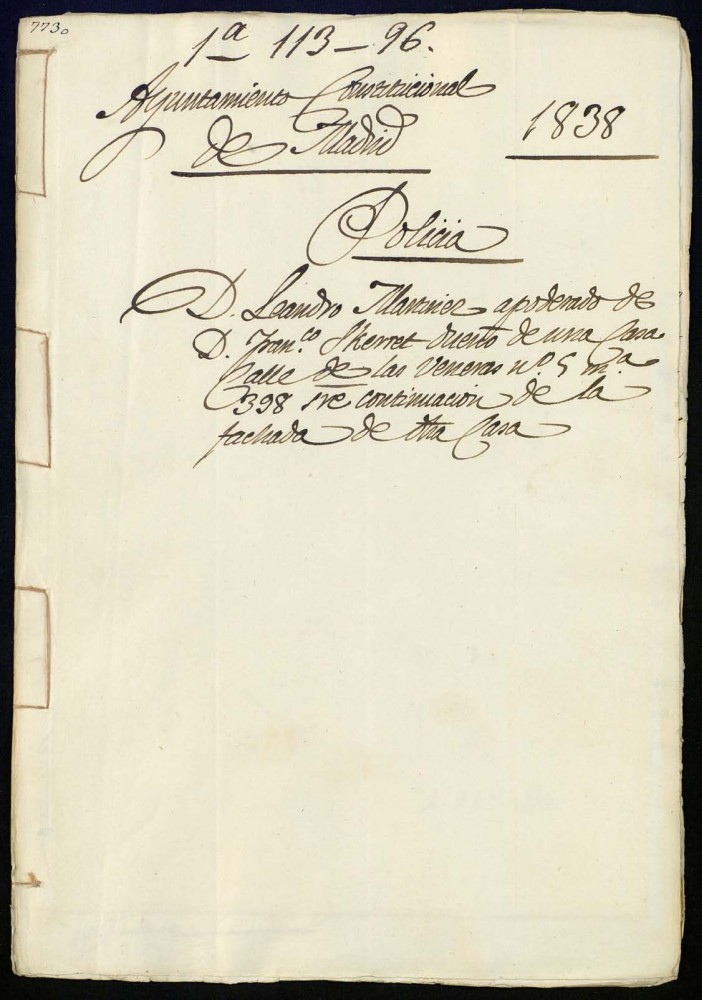 7730
1ª 113-96.
Ayuntamiento Constitucional
de Madrid
1838
Policia
D. Leandro Martinez apoderado de
D. Fran.co Skerret dueño de una Casa
Calle de las Veneras nº 5 m.ª
398 sre continuacion de la
fachada de dha Casa